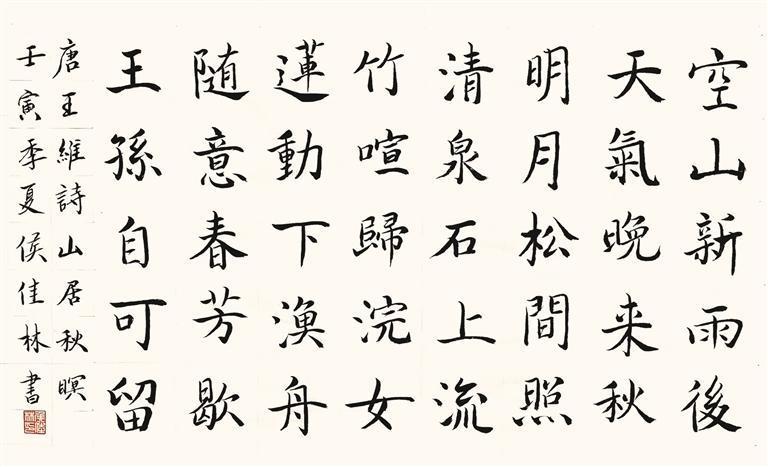 空山新雨後
天氣晚来秋
明月松間照
清泉石上流
竹喧歸浣女
蓮動下漁舟
随意春芳歇
王孫自可留
唐王維詩山居秋暝
壬寅季夏侯佳林書